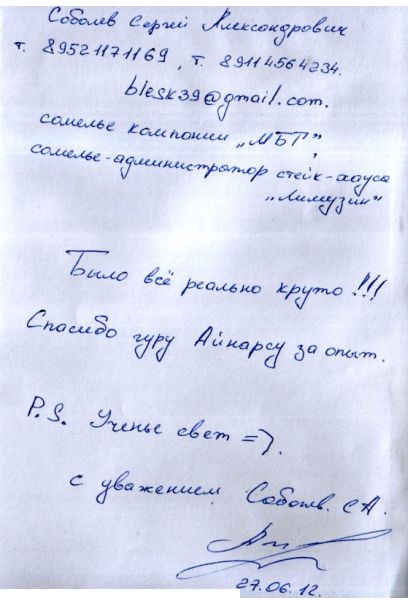 Соболев Сергей Александрович
т. 89521171169, т. 89114564234.
blesk39@gmail.com.
сомелье компании „МБГ”,
сомелье-администратор стейк-хауса
„Лимузин”
Было всё реально круто!!!
Спасибо гуру Айнарсу за опыт.
P.S. Ученье свет =).
с уважением Соболев. СА.
27.06.12.